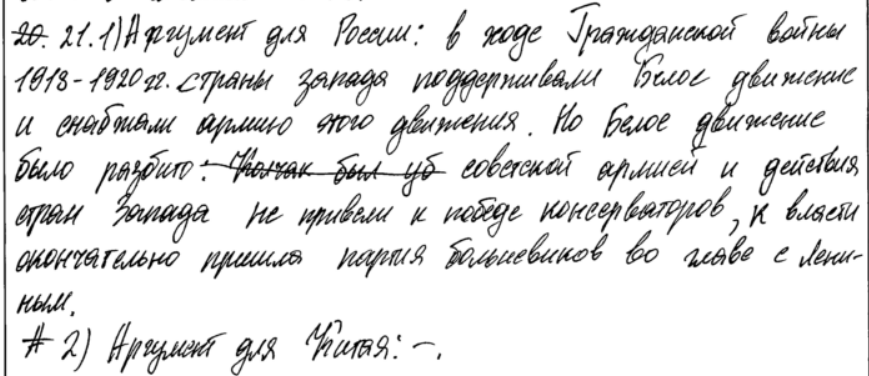 20. 21. 1) Аргумент для России: в ходе Гражданской войны
1918-1920 гг. страны запада поддерживали Белое движение
и снабжали армию этого движения. Но Белое движение
было разбито. Колчак был уб советской армией и действия
стран Запада не привели к победе консерваторов, к власти
окончательно пришла партия большевиков во главе с Лени-
ным.
# 2) Аргумент для Китая: –.